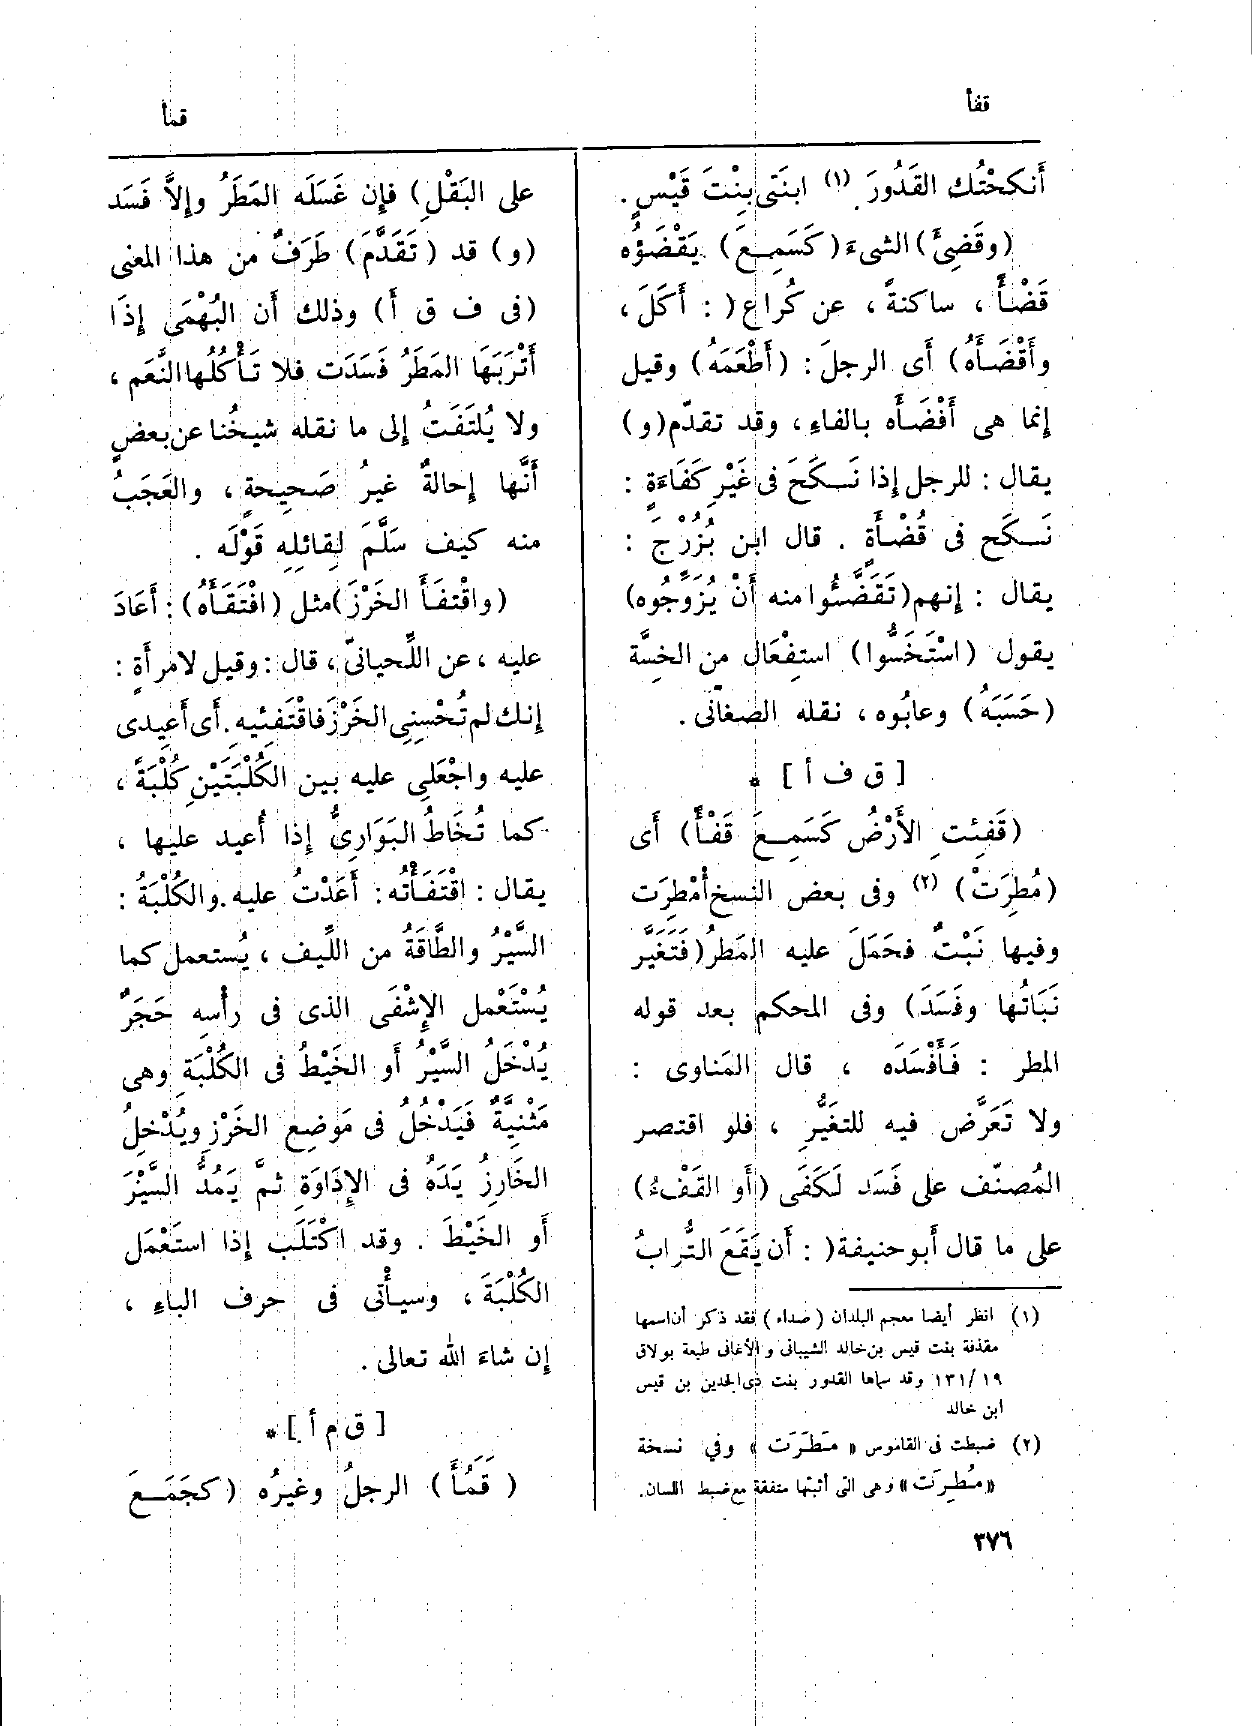 قفأ
قمأ
أَنكحْتُك القَدُورَ (١) ابنَتى بِنْتَ قَيْسٍ .
(وقَضِئَ) الشىءَ (كَسَمِعَ) يَقْضَؤُه
قَضْأً ، ساكنةً ، عن كُراع ( : أَكَلَ ،
وأَقْضَأَه) أَى الرجلَ : (أَطْعَمَهُ) وقيل
إِنما هى أَفْضَأَه بالفاءِ ، وقد تقدّم (و)
يقال : للرجل إِذا نَكَحَ فى غَيْرِ كَفَاءَةٍ :
نَكَح فى قُضْأَةٍ . قال ابن بُزُرْجَ :
يقال : إِنهم (تَقَضَّئُوا منه أَنْ يُزَوِّجُوه)
يقول (اسْتَخَسُّوا) استِفْعَال من الخِسَّة
(حَسَبَهُ) وعابُوه ، نقله الصغانّى .
[ ق ف أ ] *
(قَفِئَتِ الأَرْضُ كَسَمِعَ قَفْأً) أَى
(مُطِرَتْ) (٢) وفى بعض النسخ أُمْطِرَت
وفيها نَبْتٌ فحَمَلَ عليه المَطرُ (فَتَغَيَّر
نَبَاتُها وفَسَدَ) وفى المحكم بعد قوله
المطر : فَأَفْسَدَه ، قال المَناوى :
ولا تَعَرَّض فيه للتغَيُّرِ ، فلو اقتصر
المُصنّف على فَسَد لَكَفَى (أَو القَفْءُ)
على ما قال أَبو حنيفة ( : أَن يَقَعَ التُّرابُ
(١) انظر أيضا معجم البلدان (صداء) فقد ذكر أن اسمها
مقذفة بنت قيس بن خالد الشيبانى والأغانى طبعة بولاق
١٩ /١٣١ وقد سماها القدور بنت ذى الجدين بن قيس
ابن خالد
(٢) ضبطت فى القاموس « مَطَرَت » وفي نسخة
« مُطِرَت » وهى التى أثبتها متفقة مع ضبط اللسان.
٣٧٦
على البَقْلِ) فإِن غَسَلَه المَطَرُ وإِلاَّ فَسَد
(و) قد (تَقَدَّمَ) طَرَفٌ من هذا المعنى
(فى ف ق أ) وذلك أَن البُهْمَى إِذَا
أَتْرَبَهَا المَطَرُ فَسَدَت فلا تَأْكُلُها النَّعَم ،
ولا يُلتَفَتُ إِلى ما نقله شيخُنا عن بعضٍ
أَنَّها إِحالةٌ غيرُ صَحِيحةٍ ، والعَجَبُ
منه كيف سَلَّمَ لِقائلِهِ قَوْلَه .
(واقْتفَأَ الخَرْزَ) مثل (افْتَقَأَه) : أَعَادَ
عليه ، عن اللِّحيانىّ ، قال : وقيل لامرأَةٍ :
إِنك لم تُحْسِنِى الخَرْزَ فاقْتَفِئيه . أَى أَعيدى
عليه واجْعَلى عليه بين الكُلْبَتَيْنِ كُلْبَةً ،
كما تُخَاطُ البَوَارِىُّ إِذا أُعيد عليها ،
يقال : اقْتَفَأْتُه : أَعَدْتُ عليه . والكُلْبَةُ :
السَّيْرُ والطَّاقَةُ من اللِّيف ، يُستعمل كما
يُسْتَعْمل الإِشْفَى الذى فى رأْسِه حَجَرٌ
يُدْخَلُ السَّيْرُ أَو الخَيْطُ فى الكُلْبَةِ وهى
مَثْنِيَّةٌ فَيَدْخُلُ فى مَوضِع الخَرْزِ ويُدْخِلُ
الخَارِزُ يَدَهُ فى الإِدَاوَةِ ثمَّ يَمُدُّ السَّيْرَ
أَو الخَيْطَ . وقد اكْتَلَب إِذا استَعْمَل
الكُلْبَةَ ، وسيأْتى فى حرف الباءِ ،
إِن شاءَ اللّه تعالى .
[ ق م أ ] *
( قَمَأَ ) الرجلُ وغيرُه ( كجَمَعَ